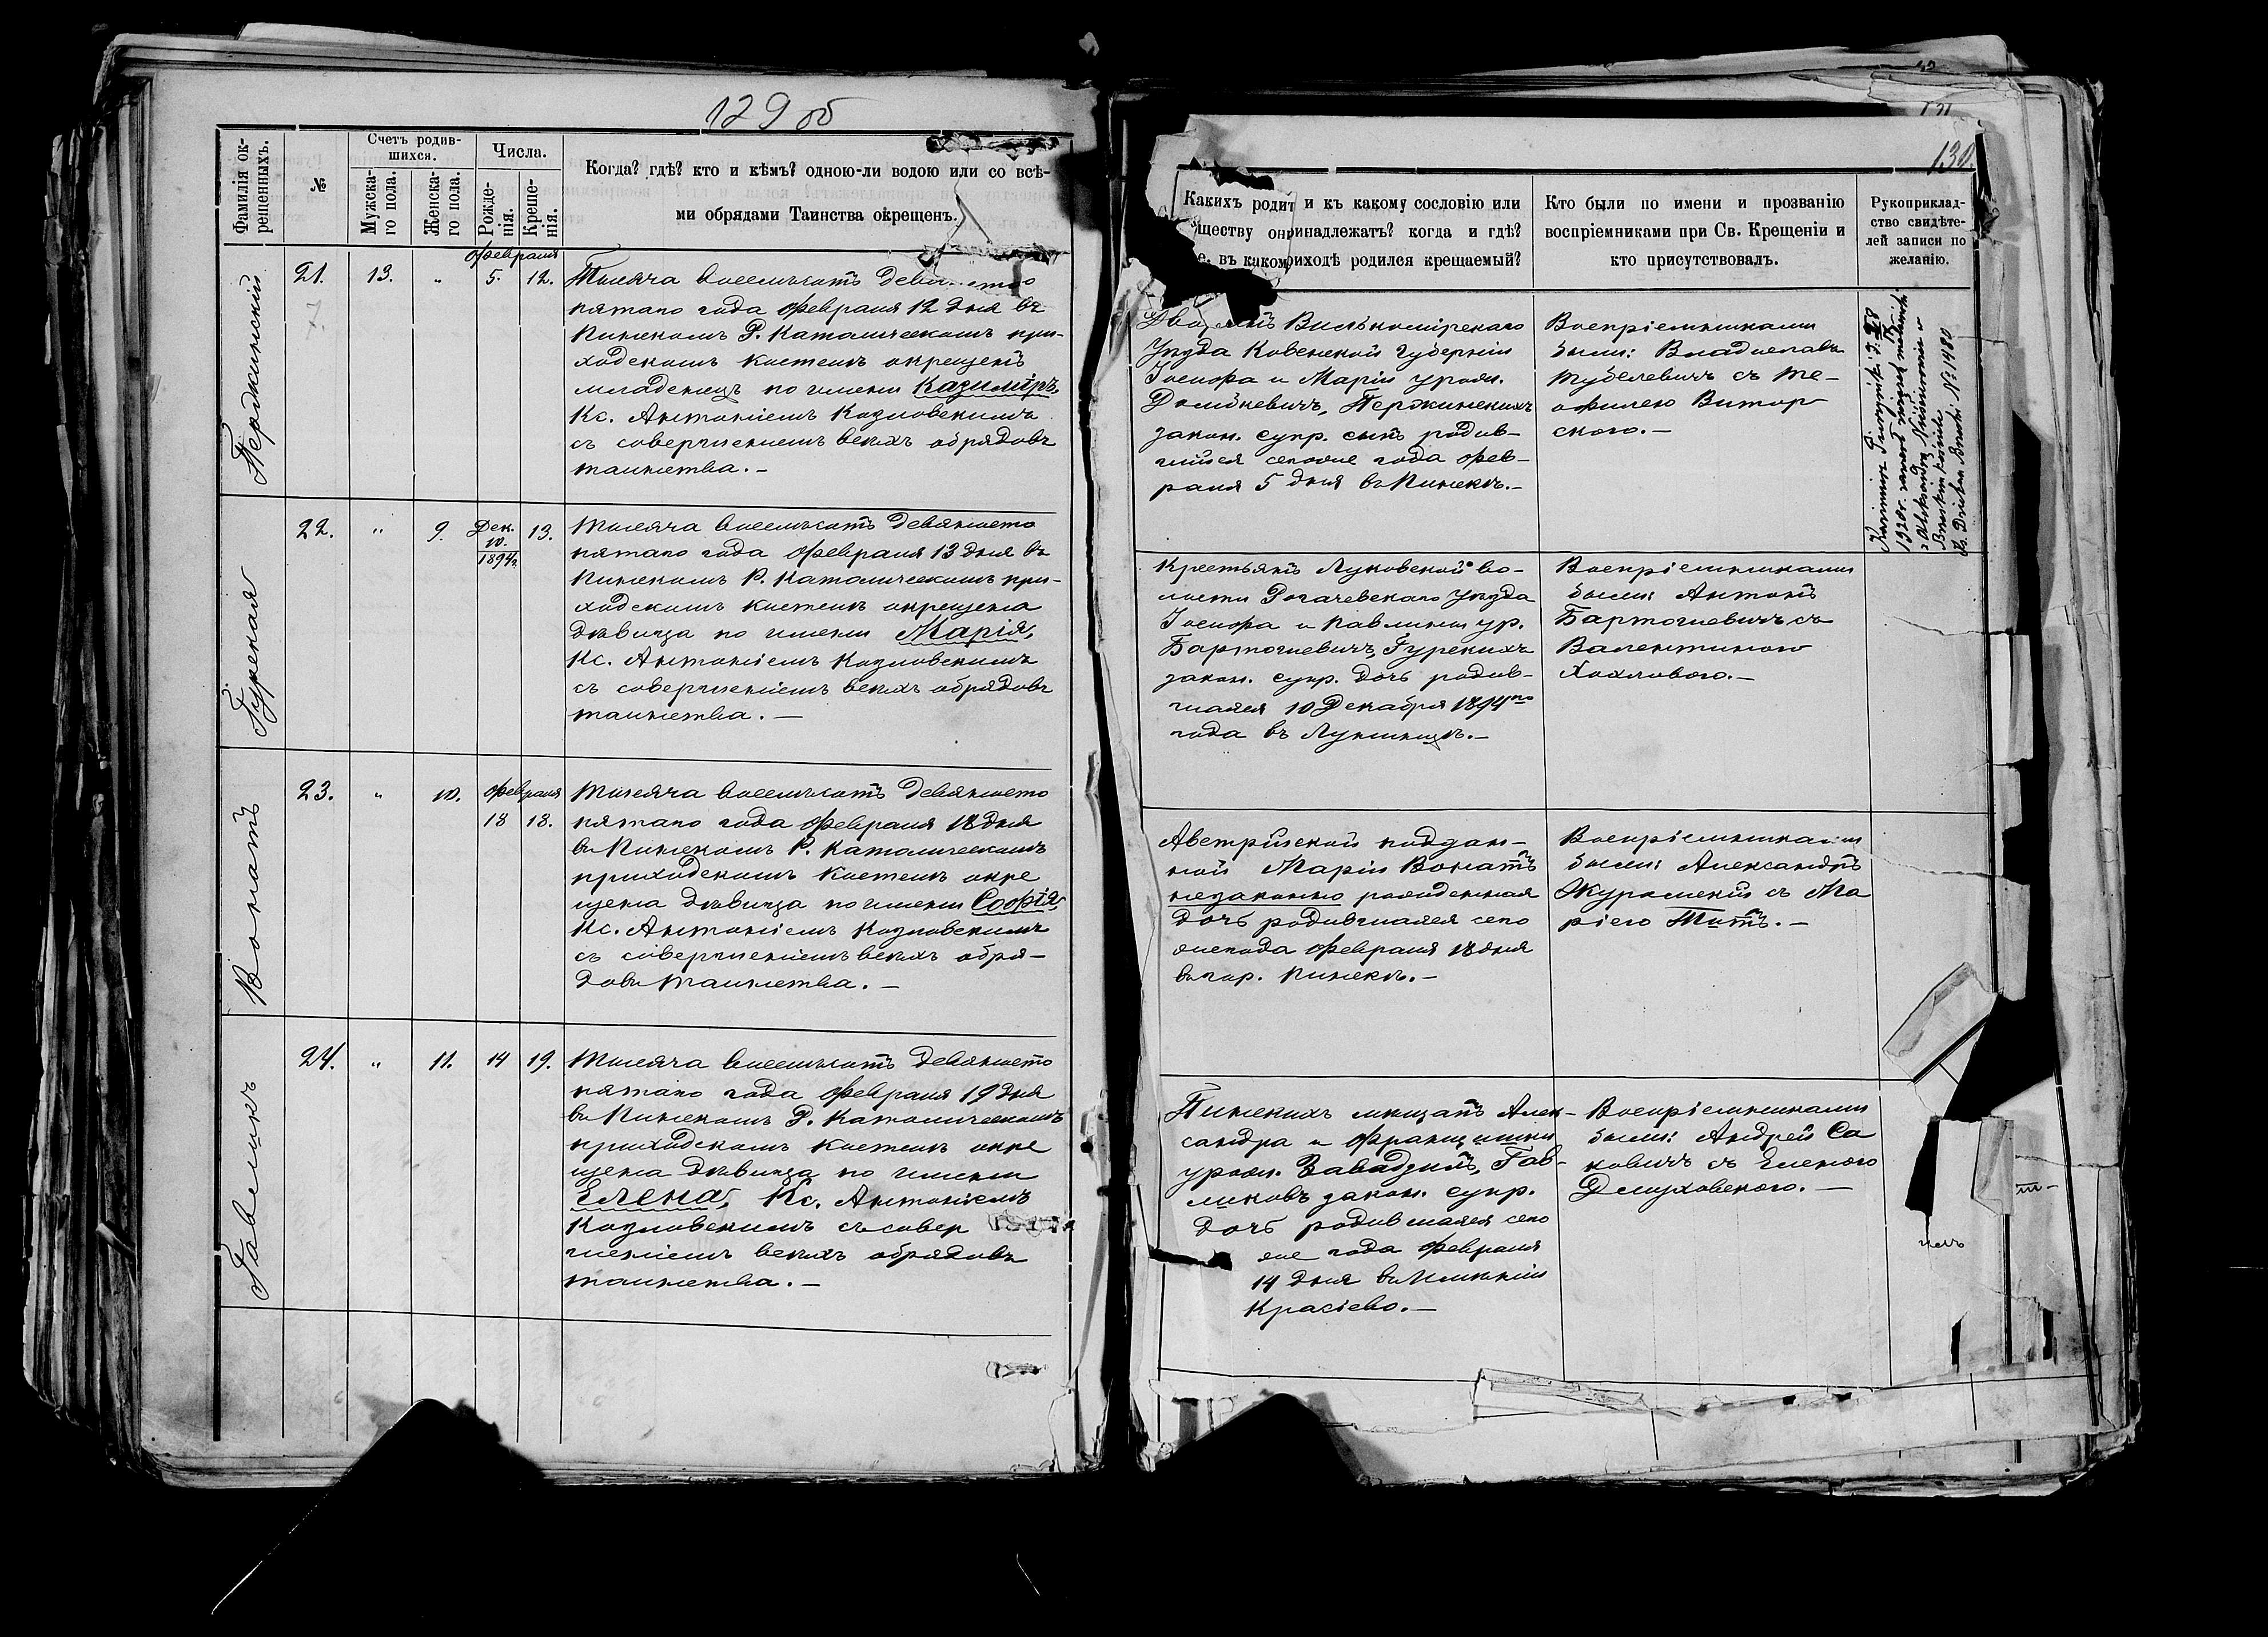 129 об
Фамилія ок-
рещенныхъ.
№
Счетъ родив-
шихся.
Мужска-
го пола.
Женска-
го пола.
Числа.
Рожде-
нія.
Креще-
нія.
Когда? гдѣ? кто и кѣмъ? одною-ли водою или со всѣ-
ми обрядами Таинства окрещенъ.
Февраля
21. 13. " 5. 12.
Тысяча восемьсотъ
пятаго года Февраля 12 дня въ
Пинскомъ Р. Католическомъ при-
ходскомъ костелѣ окрещенъ
младенецъ по имени Казиміръ,
Кс. Антоніемъ Козловскимъ
съ совершеніемъ всѣхъ обрядовъ
таинства. —
Гурская
22. " 9. Дек. 10. 1894г. 13.
Тысяча восемьсотъ девяносто
пятаго года Февраля 13 дня въ
Пинскомъ Р. Католическомъ при-
ходскомъ костелѣ окрещена
дѣвица по имени Марія,
Кс. Антоніемъ Козловскимъ
съ совершеніемъ всѣхъ обрядовъ
таинства. —
Вонатъ
23. " 10. Февраля
18 18.
Тысяча восемьсотъ девяносто
пятаго года Февраля 18 дня
въ Пинскомъ Р. Католическомъ
приходскомъ костелѣ окре
щена дѣвица по имени Софія,
Кс. Антоніемъ Козловскимъ
съ совершеніемъ всѣхъ обря-
довъ таинства. —
Гавликъ
24. " 11. 14 19.
Тысяча восемьсотъ девяносто
пятаго года Февраля 19 дня
въ Пинскомъ Р. Католическомъ
приходскомъ костелѣ окре
щена дѣвица по имени
Елена, Кс. Антоніемъ
Козловскимъ съ совер
шеніемъ всѣхъ обрядовъ
таинства. —
130.
Какихъ родит и къ какому сословію или
ществу принадлежатъ? когда и гдѣ?
е. въ каком приходѣ родился крещаемый?
Кто были по имени и прозванію
воспріемниками при Св. Крещеніи и
кто присутствовалъ.
Рукоприклад-
ство свидѣте-
лей записи по
желанію.
Вилькомірскаго
Уѣзда Ковенской Губерніи
Іосифа и Маріи урож.
закон. супр. сынъ родив-
шійся сегоже года Фев-
раля 5 дня въ Пинскѣ. —
Воспріемниками
были: Владиславъ
съ Те-
офилею
ского. —
Kazimierz
1928 r. zawarł związek małżeński
z Aleksandrą
№ 1480
Крестьянъ Луковской во-
лости Рогачевскаго Уѣзда
Іосифа и Павлины ур.
Бартошевичъ, Гурскихъ
закон. супр. дочь родив-
шаяся 10 Декабря 1894го
года въ Лунинцѣ. —
Воспріемниками
были: Антонъ
Бартошевичъ съ
Валентиною
Хохловою. —
Австрійской поддан-
ной Маріи Вонатъ
незаконно рожденная
дочь родившаяся сего
же года Февраля 18 дня
въ гор. Пинскѣ. —
Воспріемниками
были: Александръ
Журомскій съ Ма
ріею
Пинскихъ мѣщанъ Алек-
сандра и Францишки
урож. Завадзкихъ, Гав-
ликовъ закон. супр.
дочь родившаяся сего
же года Февраля
14 дня въ Имѣніи
Красіево. —
Воспріемниками
были: Андрей Са
ковичъ съ Еленою